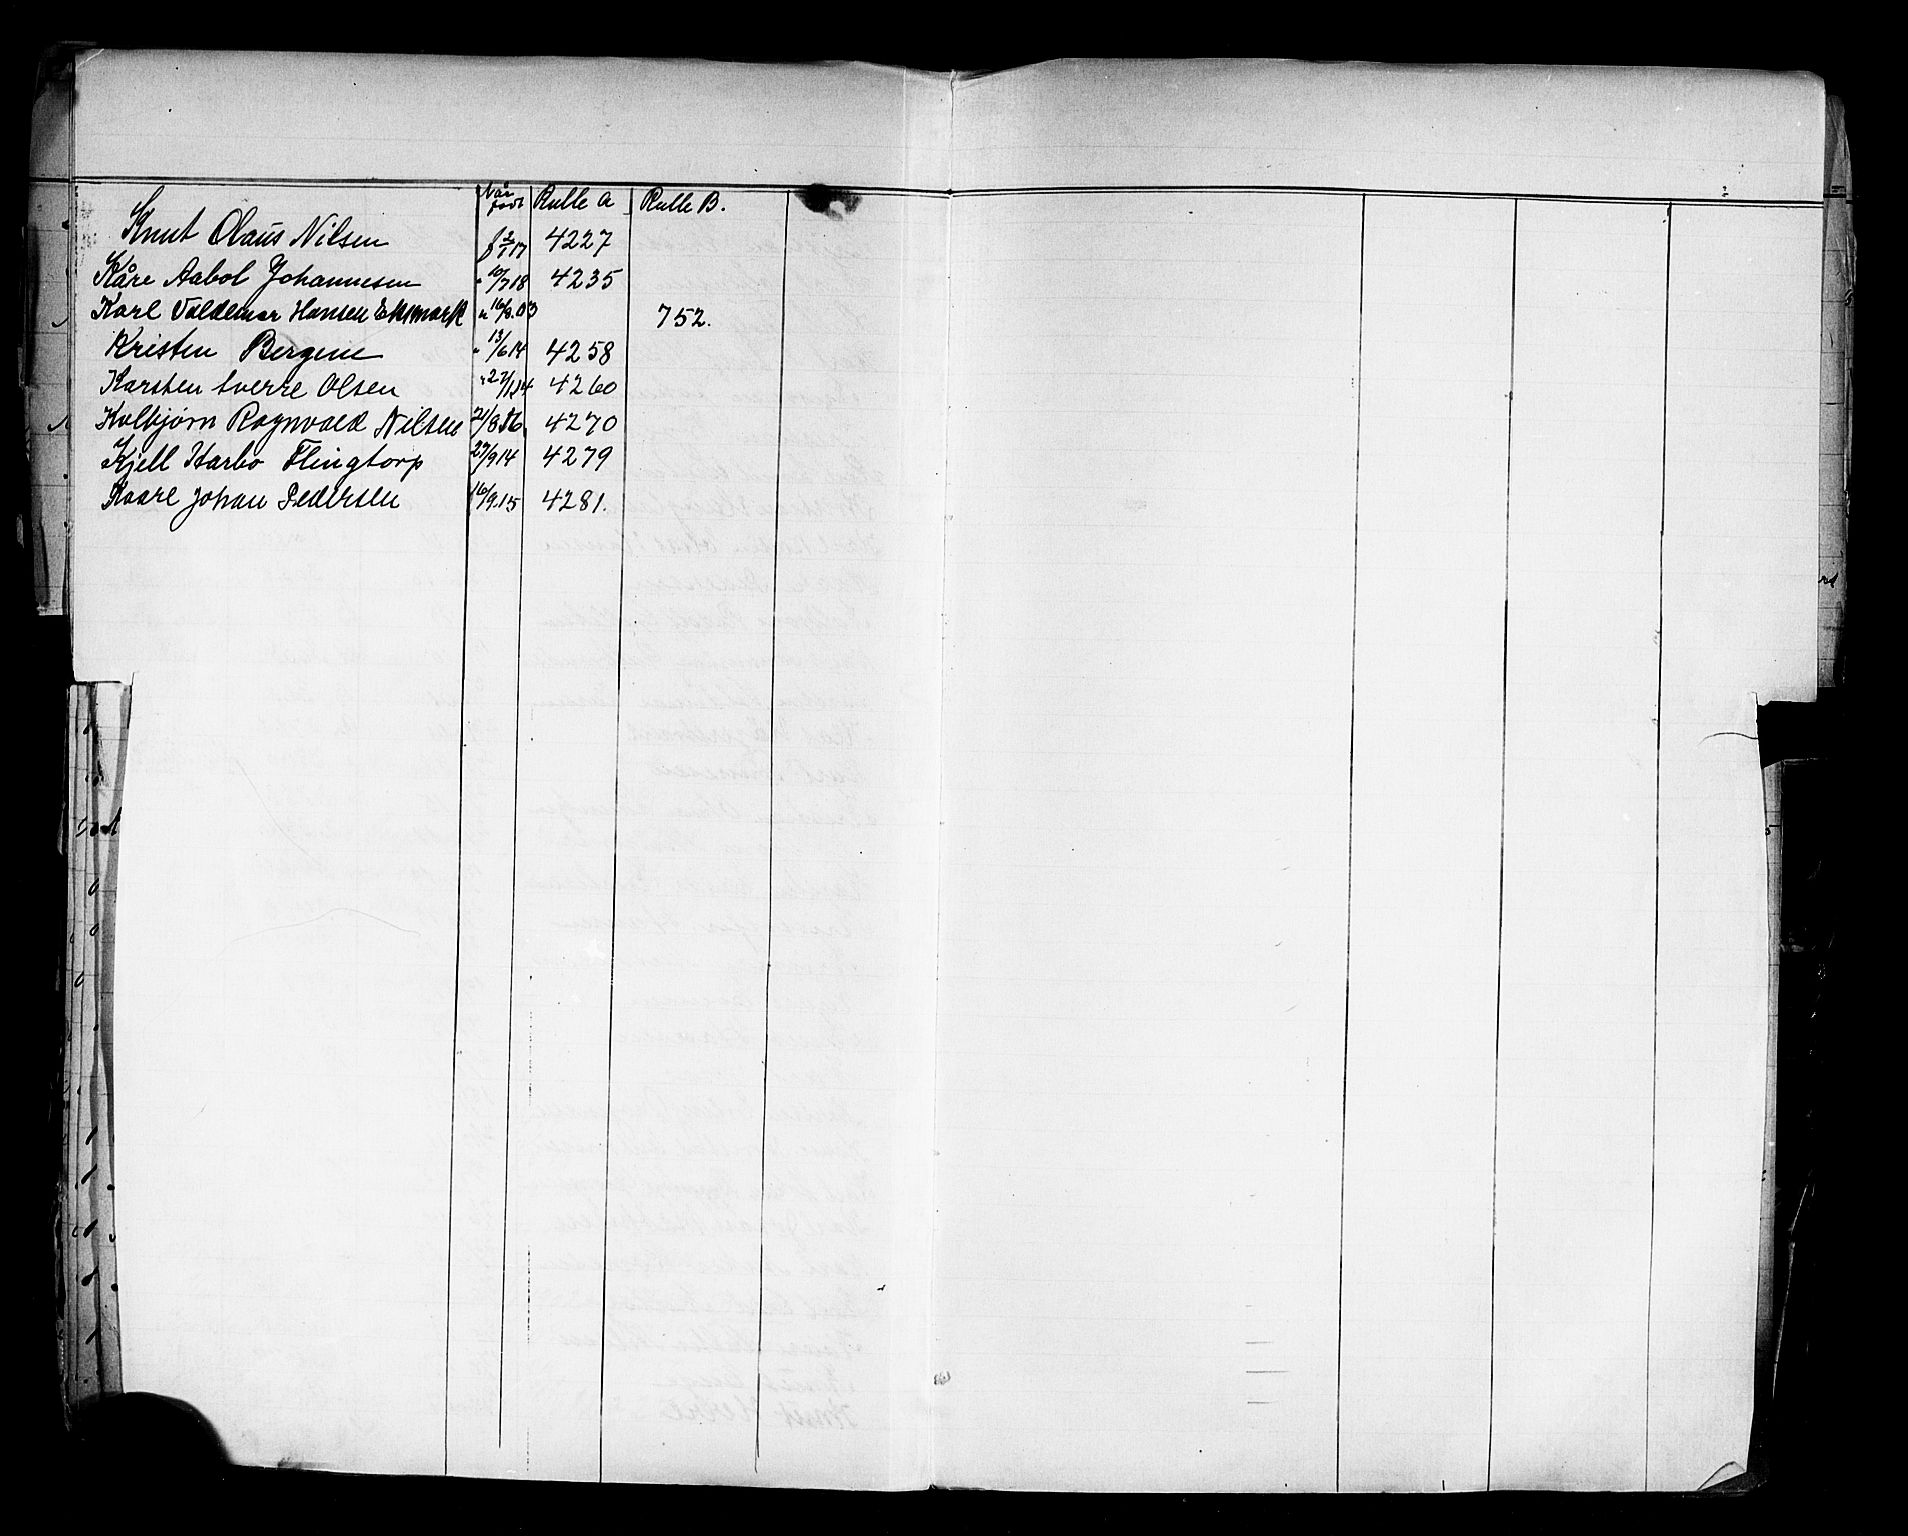 Når født Rulle A Rulle B.
Knut Olaus Nilsen f 2/1 17 4227
Kåre Aabol Johannesen " 10/7 18 4235
Karl Valdemar Hansen Ekmark " 16/9.03 752.
Kristen Bergene " 13/6 14 4258
Karsten Sverre Olsen " 27/1 14 4260
Kolbjørn Ragnvald Nilsen 21/8 16 4270
Kjell Harbo Flingtorp 27/9 14 4279
Kaare Johan Pedersen 16/9.15 4281.